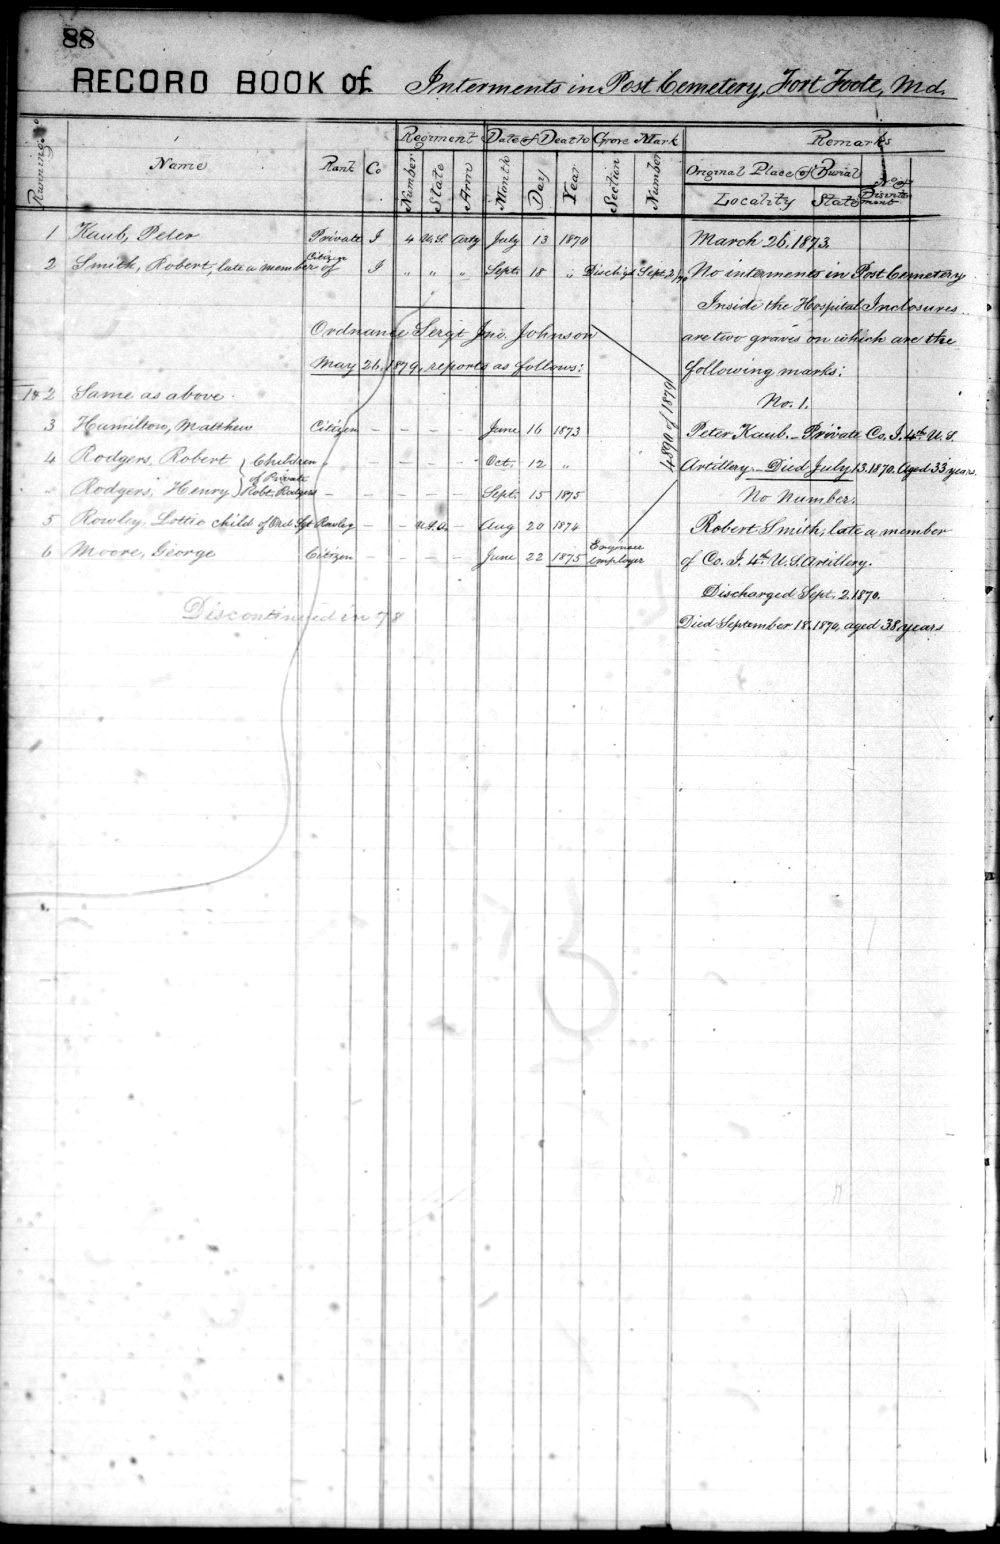 88
RECORD BOOK of Interments in Post Cemetery, Fort Foote, Md.
Running No. Name Rank Co Regiment Date of Death Grave Mark Remarks
Number State Arm Month Day Year Section Number Original Place of Burial No of Disinterment
Locality State
1 Kaub, Peter Private I 4 U.S. Arty July 13 1870 March 26, 1873.
2 Smith, Robert, late a member of Citizen I " " " Sept. 18 " Disch'gd Sept. 2/70 No interments in Post Cemetery
Inside the Hospital Inclosures
Ordnance Sergt Jno. Johnson are two graves on which are the
May 26, 1879, reports as follows: following marks:
4890 of 1879
1 & 2 Same as above. No. 1.
3 Hamilton, Matthew Citizen – – – – June 16 1873 Peter Kaub. – Private Co. I. 4th U.S.
4 Rodgers, Robert } Children " – – – – Oct. 12 " Artillery – Died July 13. 1870. Aged 33 years.
" Rodgers, Henry } of Private Robt. Rodgers – – – – Sept. 15 1875 No Number.
5 Rowley, Lottie child of Ord. Sgt Rowley – – U.S.A. – Aug 20 1874 Robert Smith, late a member
6 Moore, George Citizen – – – – June 22 1875 Engineer employee of Co. I. 4th U.S. Artillery.
Discharged Sept. 2. 1870.
Discontinued in 78 Died September 18. 1870, aged 38 years